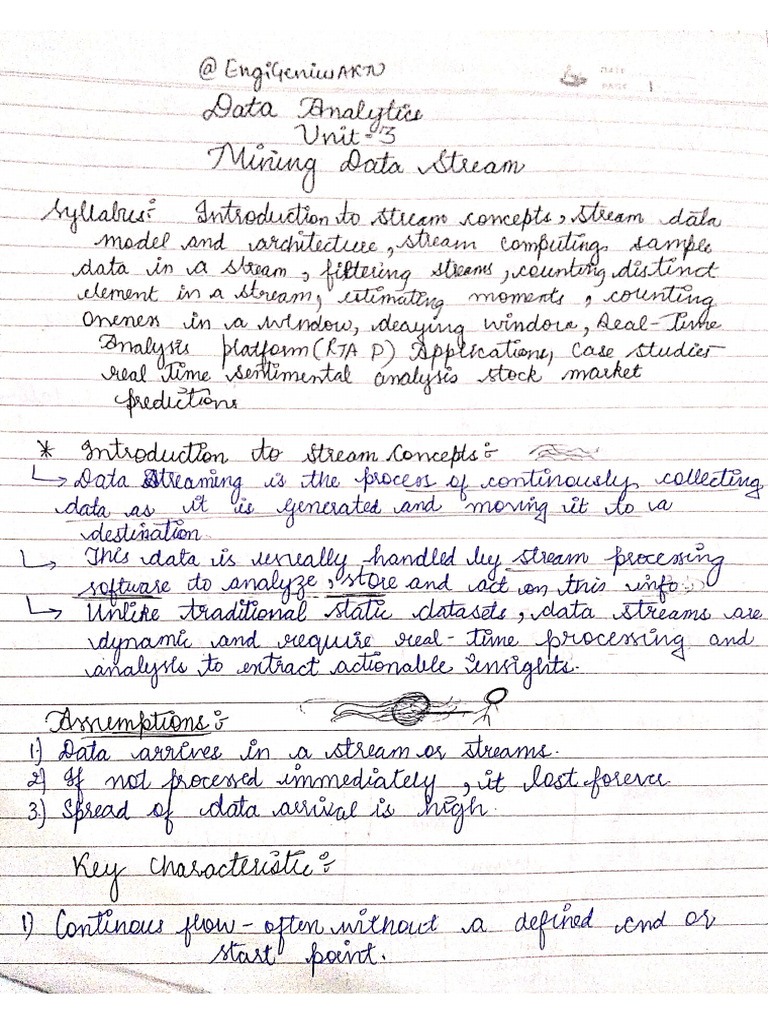 @EngiGeniusAKTU
DATE
PAGE 1
Data Analytics
Unit-3
Mining Data Stream
Syllabus:- Introduction to stream concepts, stream data
model and architecture, stream computing, sample
data in a stream, filtering streams, counting distinct
element in a stream, estimating moments, counting
oneness in a window, deaying window, Real-Time
Analysis platform (RTA P) Applications, Case studies
real time sentimental analysis stock market
predictions
* Introduction to Stream Concepts:-
↳ Data Streaming is the process of continously collecting
data as it is generated and moving it to a
destination
↳ This data is usually handled by stream processing
software to analyze, store and act on this info.
↳ Unlike traditional static datasets, data streams are
dynamic and require real-time processing and
analysis to extract actionable insights.
Assumptions:-
1.) Data arrives in a stream or streams.
2) If not processed immediately, it lost forever
3.) Spread of data arrival is high.
Key Characteristic:-
1) Continous flow - often without a defined end or
start point.